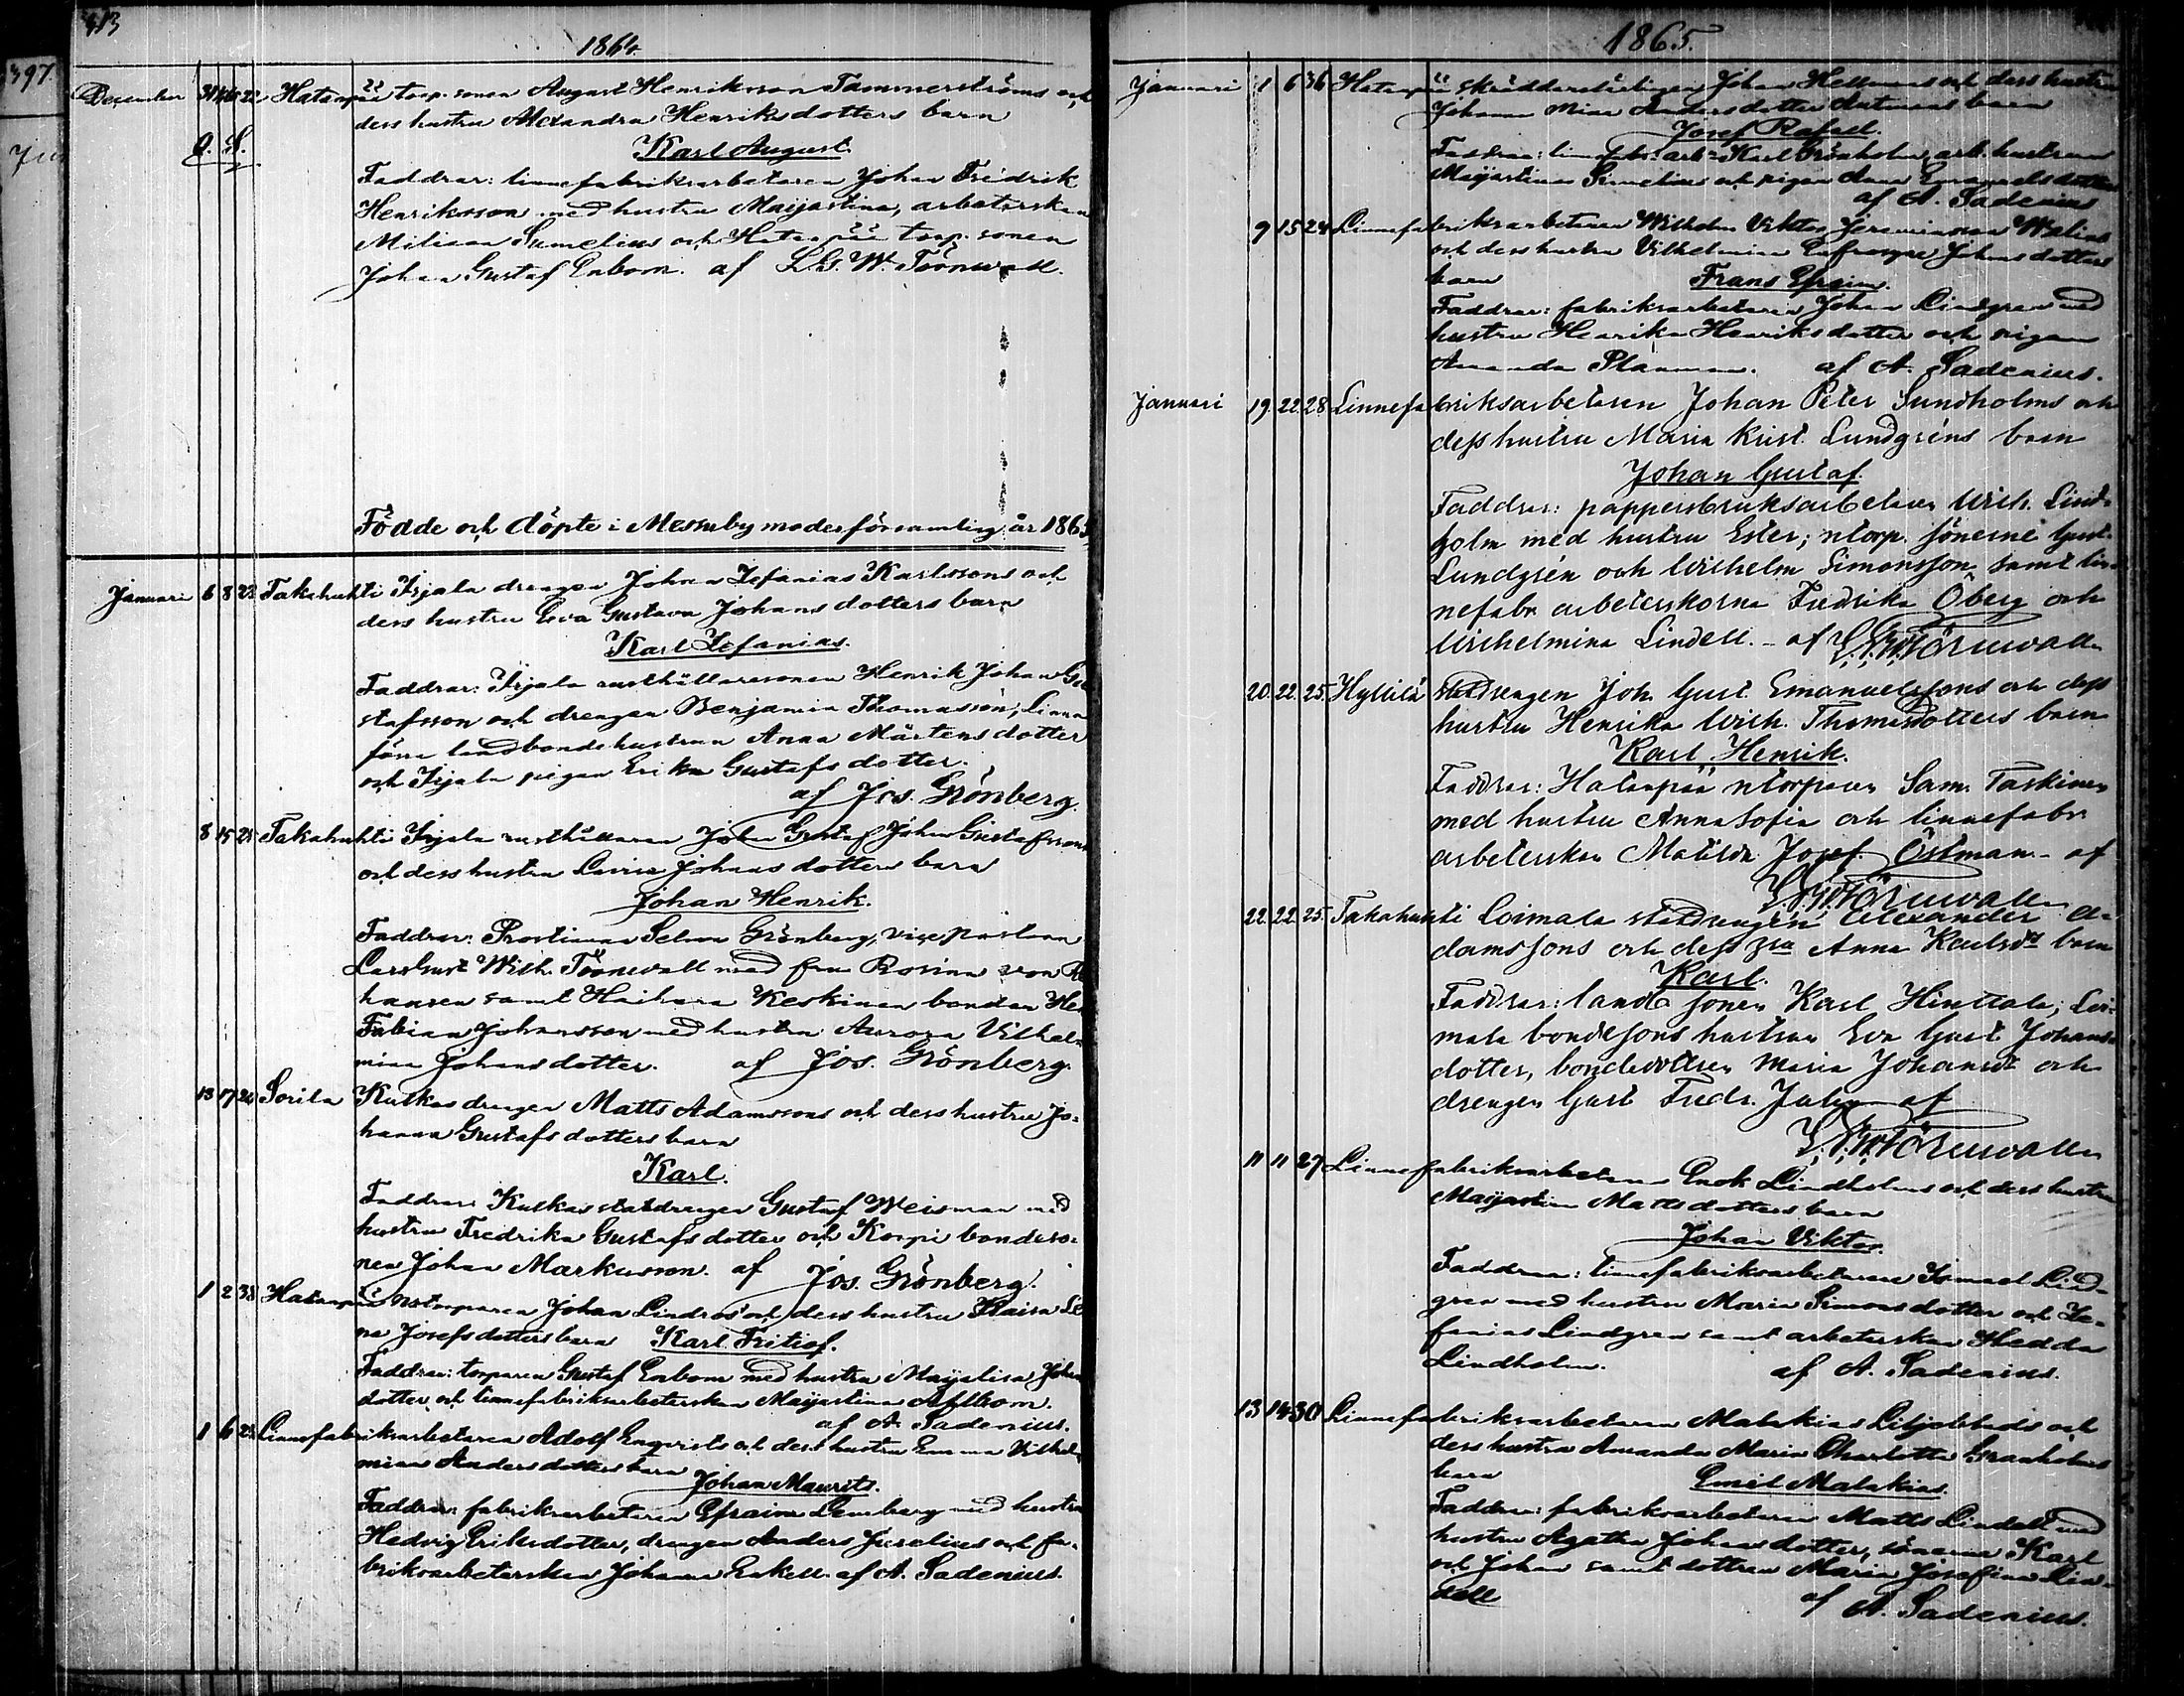 413
1864.
397
December 31 22 Hatanpää torp. sonen August Henriksson Tammerströms och
dess hustru Alexandra Henriksdotters barn
Q. S.
Karl August.
Faddrar: linnefabriksarbetaren Johan Fredrik
Henriksson med hustru Maijastina, arbeterskan
Milissa Sumelius och Hatanpää torp. sonen
Johan Gustaf Enbom. af L. G. W. Törnwall.
Födde och döpte i Messuby moderförsamling år 1865
Januari 6 8 22 Takahuhti Irjala drengen Johan Zefanias Karlssons och
dess hustru Eva Gustava Johansdotters barn
Karl Zefanias.
Faddrar: Irjala rusthållaresonen Henrik Johan Gu
stafsson och drengen Benjamin Thomasson, Linna
före landbondehustrun Anna Mårtensdotter
och Irjala pigan Erika Gustafsdotter.
af Jos. Grönberg.
8 15 25 Takahuhti Irjala rusthållaren Johan Gustaf Johan Gustafssons
och dess hustru Lovisa Johansdotters barn
Johan Henrik.
Faddrar: Prostinnan Selma Grönberg, vicepastorn
Lars Gust. Wilh. Törnwall med fru Rosina von
hausen samt Haihara Keskinen bonden He
Fabian Johansson med hustru Aurora Vilhel-
mina Johansdotter. af Jos. Grönberg.
13 17 24 Sorila Kuskas drengen Matts Adamssons och dess hustru Jo-
hanna Gustafsdotters barn
Karl.
Faddrar: Kuskas statdrengen Gustaf Weisman med
hustru Fredrika Gustafsdotter och Korpi bondeso-
nen Johan Markusson. af Jos. Grönberg.
1 2 38 Hatanpää ntorparen Johan Lindros och dess hustru Kaisa Le
na Josefsdotters barn Karl Fritiof.
Faddrar: torparen Gustaf Enbom med hustru Maijalisa Johans
dotter och linnefabriksarbeterskan Maijastina Ahlbom.
af A. Sadenius.
1 6 25 Linnefabriksarbetaren Adolf Enqvists och dess hustru Emma Vilhel
mina Andersdotters barn
Johan Maurits.
Faddrar: fabriksarbetaren Efraim Lemberg med hustru
Hedvig Eriksdotter, drengen Anders Juselius och fa-
briksarbeterskan Johanna Enkell. af A. Sadenius.
1865.
Januari 1 6 36 Hatanpää skräddarelärlingen Johan Hellmans och dess hustru
Johanna Mina Andersdotter barn
Josef Rafael.
Faddrar: linnefabr. arb. Karl Grönholm, arb. hustrun
Maijastina Sumelius och pigan Anna Emanuelsdotter
af A. Sadenius
9 15 24 Linnefabriksarbetaren Wilhelm Viktor Jeremiasson Walins
och dess hustru Vilhelmina Eufrosyne Johansdotters
barn Frans Efraim.
Faddrar: fabriksarbetaren Johan Lindgren med
hustru Henrika Henriksdotter och pigan
Amanda Planman. af A. Sadenius.
Januari 19. 22. 28. Linnefabriksarbetaren Johan Peter Sundholms och
dess hustru Maria Krist. Lundgréns barn
Johan Gustaf.
Faddrar: pappersbruksarbetaren Wilh. Lind-
holm med hustru Ester; ntorp. sönerne Gust.
Lundgrén och Wilhelm Simonsson samt lin-
nefabr arbeterskorna Fredrika Öberg och
Wilhelmina Lindell. - af L. G. W. Törnwall
20. 22. 25. Hyllilä statdrengen Joh. Gust. Emanuelssons och dess
hustru Henrika Wilh. Thomasdotters barn
Karl Henrik.
Faddrar: Hatanpää ntorparen Sam. Taskinen
med hustru Anna Sofia och linnefabr
arbeterskan Matilda Josef. Östman - af
L. G. W. Törnwall
22. 22. 25. Takahuhti Loimala statdrengen Alexander A-
damssons och dess hu Anna Karlsdr barn
Karl.
Faddrar: landb. sonen Karl Hinttala; Loi-
mala bondesons hustrun Eva Gust. Johans-
dotter, bondedottren Maria Johansdr och
drengen Gust. Fredr. af
L. G. W. Törnwall
11 11 27 Linnefabriksarbetaren Enok Lindholms och dess hustru
Maijastina Mattsdotters barn
Johan Viktor.
Faddrar: linnefabriksarbetaren Ismael Lind-
gren med hustru Maria Simonsdotter och Ze-
fanias Lindgren samt arbeterskan Hedda
Lindholm. af A. Sadenius.
13 14 30 Linnefabriksarbetaren Malakias Liljeblads och
dess hustru Amanda Maria Charlotta Granholms
barn Emil Malakias.
Faddrar: fabriksarbetaren Matts Lindell med
hustru Agatha Johansdotter, sönerna Karl
och Johan samt dottren Maria Josefina Lin-
dell af A. Sadenius.